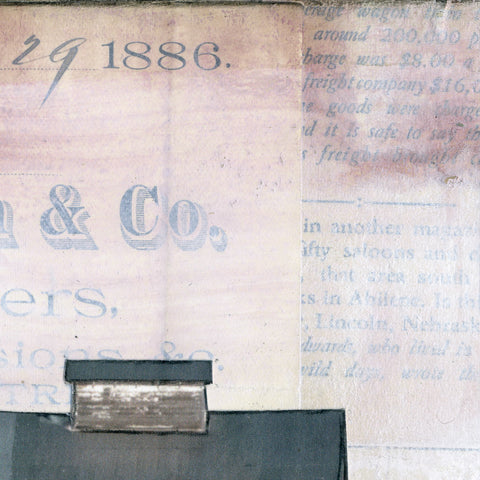 29 1886.
& Co.,
ers,
sions, &c.
TR
erage wagon
around 200,000 p
harge was $8.00 a
freight company $16,0
e goods were charge
d it is safe to say th
s freight
in another
fifty saloons and
that area south
ks in Abilene. In th
, Lincoln, Nebrask
dwards, who lived in
wild days, wrote th